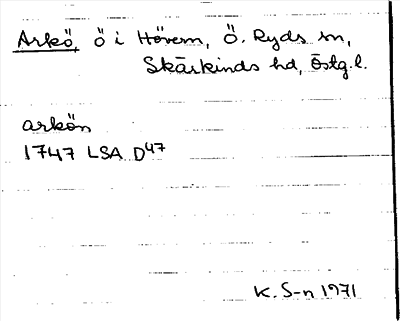 Arkö, ö i Hövern, Ö. Ryds sn,
Skärkinds hd, Östg. l.
arkön
1747 LSA D47
K. S-n 1971